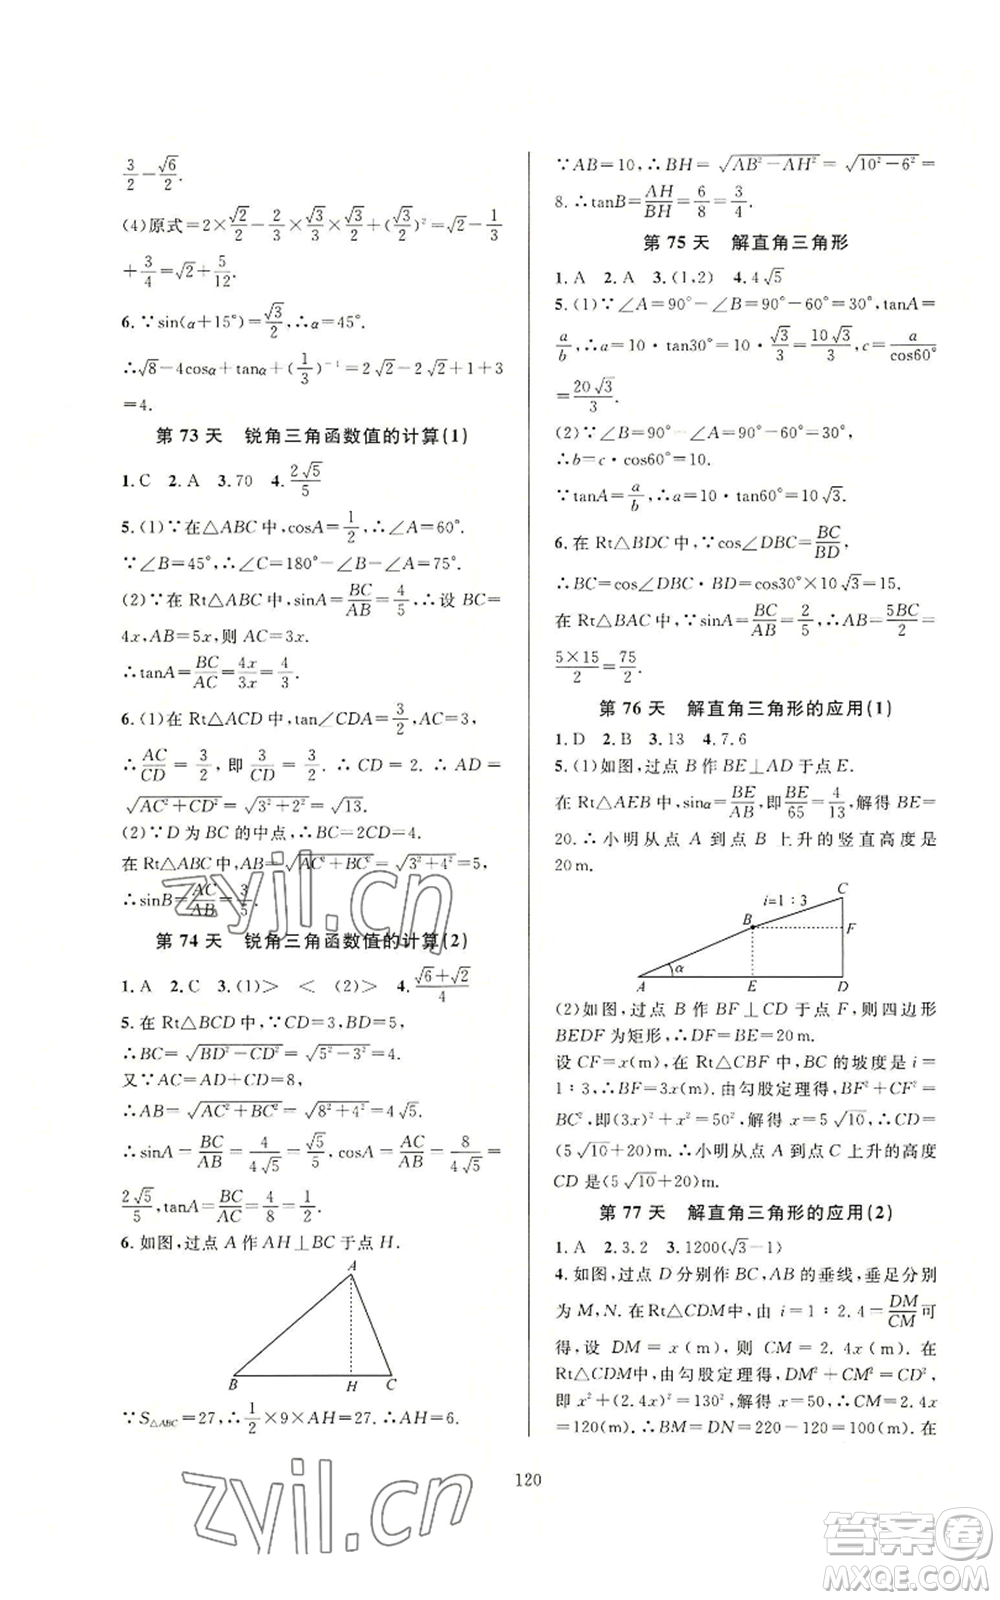 3/2−√6/2.
(4)原式=2×√2/2−2/3×√3/2×√3/2+(√3/2)²−1/2=√2−1/2
+3/4=√2+5/12.
6.∵sin(α+15°)=√3/2,∴α=45°.
∴√8−4cosα+tanα+(1/3)⁻¹=2√2−2√2+1+3
=4.
第73天 锐角三角函数值的计算(1)
1.C 2.A 3.70 4.2√5/5
5.(1)∵在△ABC中,cosA=1/2,∴∠A=60°.
∵∠B=45°,∴∠C=180°−∠B−∠A=75°.
(2)∵在Rt△ABC中,sinA=BC/AB=4/5,∴设BC=
4x,AB=5x,则AC=3x.
∴tanA=BC/AC=4x/3x=4/3.
6.(1)在Rt△ACD中,tan∠CDA=3/2,AC=3,
∴AC/CD=3/2,即3/CD=3/2.∴CD=2.∴AD=
√(AC²+CD²)=√(3²+2²)=√13.
(2)∵D为BC的中点,∴BC=2CD=4.
在Rt△ABC中,AB=√(AC²+BC²)=√(3²+4²)=5,
∴sinB=AC/AB=3/5.
第74天 锐角三角函数值的计算(2)
1.A 2.C 3.(1)> < (2)> 4.(√6+√2)/4
5.在Rt△BCD中,∵CD=3,BD=5,
∴BC=√(BD²−CD²)=√(5²−3²)=4.
又∵AC=AD+CD=8,
∴AB=√(AC²+BC²)=√(8²+4²)=4√5.
∴sinA=BC/AB=4/4√5=√5/5,cosA=AC/AB=8/4√5=
2√5/5,tanA=BC/AC=4/8=1/2.
6.如图,过点A作AH⊥BC于点H.
A
B H C
∵S△ABC=27,∴1/2×9×AH=27.∴AH=6.
∵AB=10,∴BH=√(AB²−AH²)=√(10²−6²)=
8.∴tanB=AH/BH=6/8=3/4.
第75天 解直角三角形
1.A 2.A 3.(1,2) 4.4√5
5.(1)∵∠A=90°−∠B=90°−60°=30°,tanA=
a/b,∴a=10·tan30°=10·√3/3=10√3/3,c=a/cos60°=
20√3/3.
(2)∵∠B=90°−∠A=90°−60°=30°,
∴b=c·cos60°=10.
∵tanA=a/b,∴a=10·tan60°=10√3.
6.在Rt△BDC中,∵cos∠DBC=BC/BD,
∴BC=cos∠DBC·BD=cos30°×10√3=15.
在Rt△BAC中,∵sinA=BC/AB=2/5,∴AB=5BC/2=
5×15/2=75/2.
第76天 解直角三角形的应用(1)
1.D 2.B 3.13 4.7.6
5.(1)如图,过点B作BE⊥AD于点E.
在Rt△AEB中,sinα=BE/AB,即BE/65=4/13,解得BE=
20.∴小明从点A到点B上升的竖直高度是
20m.
i=1∶3 C
B F
α
A E D
(2)如图,过点B作BF⊥CD于点F,则四边形
BEDF为矩形,∴DF=BE=20m.
设CF=x(m),在Rt△CBF中,BC的坡度是i=
1∶3,∴BF=3x(m).由勾股定理得,BF²+CF²=
BC²,即(3x)²+x²=50²,解得x=5√10,∴CD=
(5√10+20)m.∴小明从点A到点C上升的高度
CD是(5√10+20)m.
第77天 解直角三角形的应用(2)
1.A 2.3.2 3.1200(√3−1)
4.如图,过点D分别作BC,AB的垂线,垂足分别
为M,N.在Rt△CDM中,由i=1∶2.4=DM/CM可
得,设DM=x(m),则CM=2.4x(m).在
Rt△CDM中,由勾股定理得,DM²+CM²=CD²,
即x²+(2.4x)²=130²,解得x=50,∴CM=2.4x
=120(m).∴BM=DN=220−120=100(m).在
120
zyjl.cn
zyjl.cn
答案卷
MXQE.COM